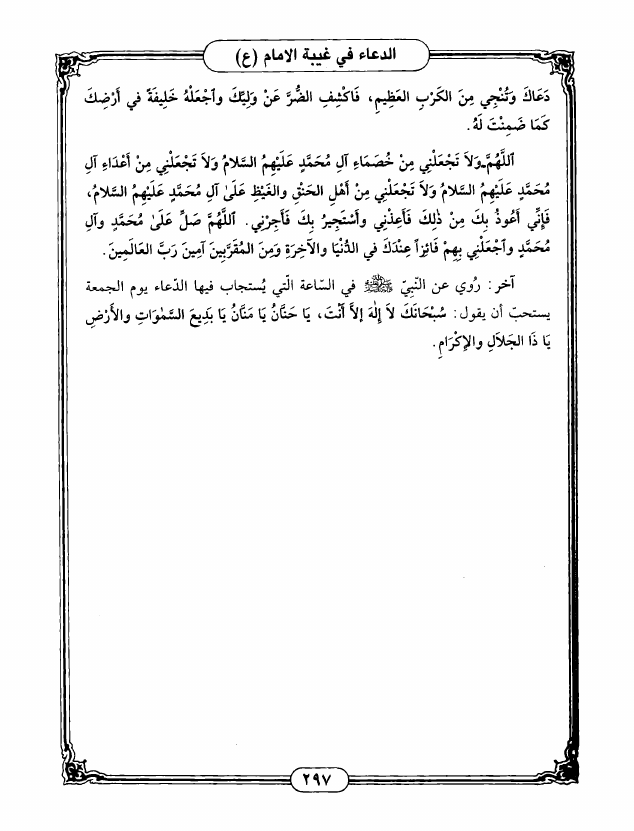 الدعاء في غيبة الامام (ع)
دَعَاكَ وَتُنْجِي مِنَ الكَرْبِ العَظِيمِ، فَاكْشِفِ الضُّرَّ عَنْ وَلِيِّكَ وٱجْعَلْهُ خَلِيفَةً في أَرْضِكَ
كَمَا ضَمِنْتَ لَهُ.
ٱللَّهُمَّ وَلاَ تَجْعَلْنِي مِنْ خُصَمَاءِ آلِ مُحَمَّدٍ عَلَيْهِمُ السَّلامُ وَلاَ تَجْعَلْنِي مِنْ أَعْدَاءِ آلِ
مُحَمَّدٍ عَلَيْهِمُ السَّلامُ وَلاَ تَجْعَلْنِي مِنْ أَهْلِ الحَنْقِ والغَيْظِ عَلَىٰ آلِ مُحَمَّدٍ عَلَيْهِمُ السَّلامُ،
فَإِنِّي أَعُوذُ بِكَ مِنْ ذٰلِكَ فَأَعِذْنِي وأَسْتَجِيرُ بِكَ فَأَجِرْنِي. ٱللَّهُمَّ صَلِّ عَلَىٰ مُحَمَّدٍ وآلِ
مُحَمَّدٍ وٱجْعَلْنِي بِهِمْ فَائِزاً عِنْدَكَ في الدُّنْيَا والآخِرَةِ وَمِنَ المُقَرَّبِينَ آمِينَ رَبَّ العَالَمِينَ.
آخر: رُوي عن النّبيّ ﷺ في السّاعة الّتي يُستجاب فيها الدّعاء يوم الجمعة
يستحبّ أن يقول: سُبْحَانَكَ لاَ إِلٰهَ إلاَّ أَنْتَ، يَا حَنَّانُ يَا مَنَّانُ يَا بَدِيعَ السَّمٰوَاتِ والأَرْضِ
يَا ذَا الجَلاَلِ والإِكْرَامِ.
٢٩٧